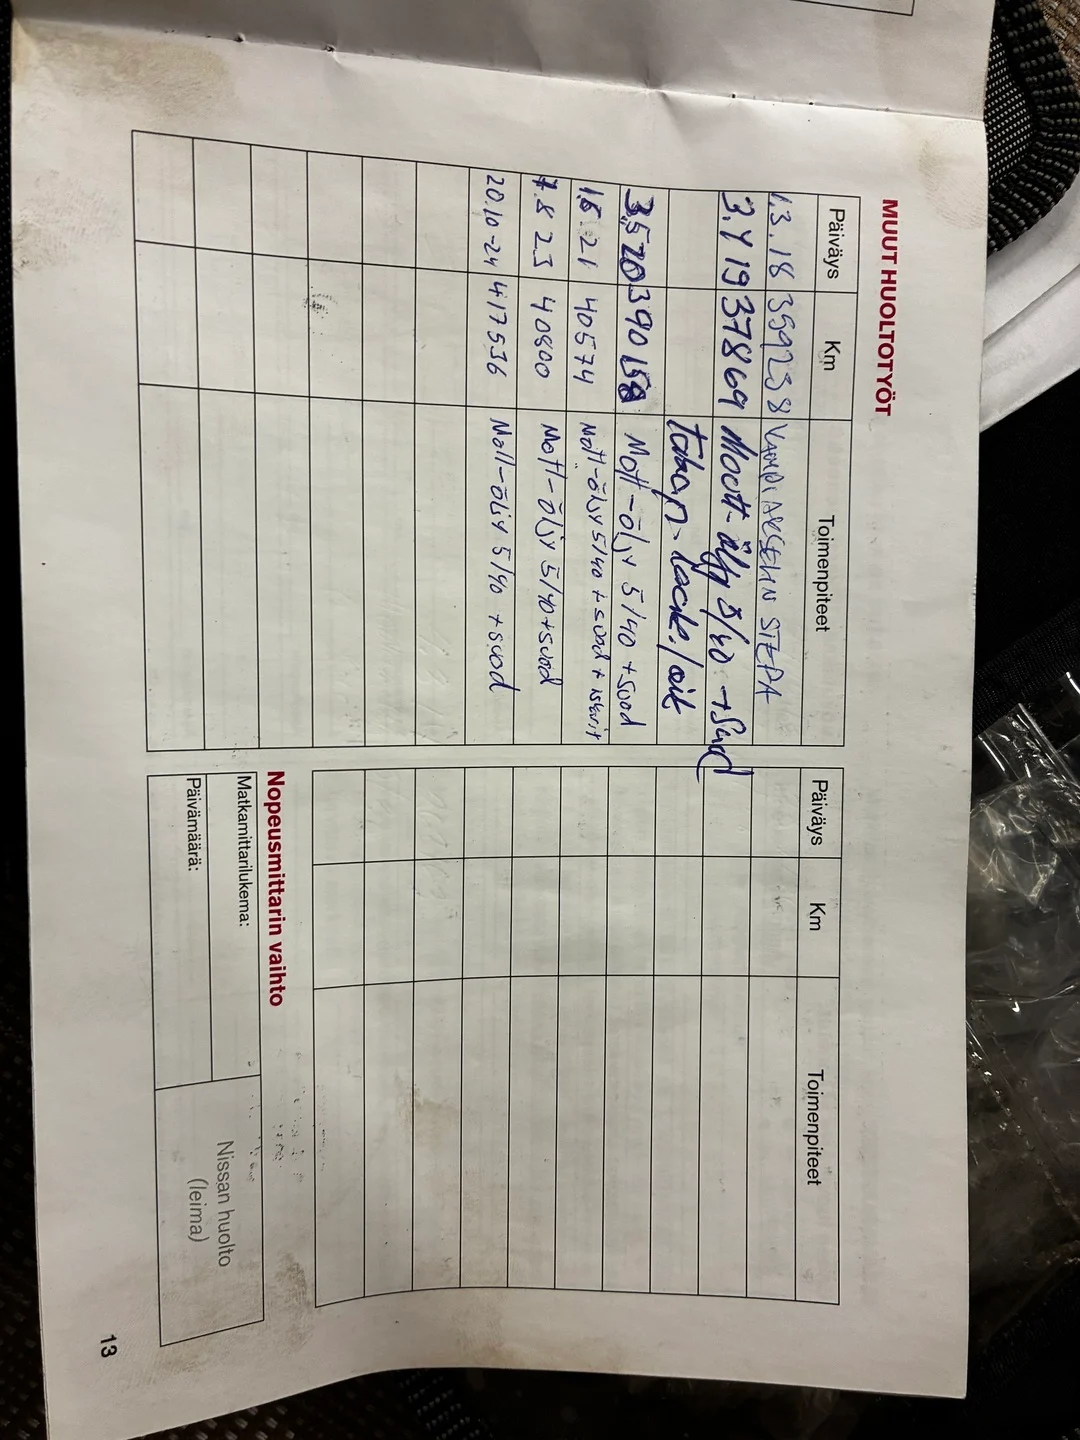 MUUT HUOLTOTYÖT
Päiväys Km Toimenpiteet
1.3.18 359238 STEPA
3.4 19 37869 Moott-öljy 5/40 + Suod
3.5 20 390158 Mott-öljy 5/40 + Suod
1.6.21 40574 Mott-öljy 5/40 + suod +
7.8 23 40800 Mott-öljy 5/40 + suod
20.10-24 417536 Mott-öljy 5/40 + suod
Päiväys Km Toimenpiteet
Nopeusmittarin vaihto
Matkamittarilukema:
Päivämäärä:
Nissan huolto
(leima)
13